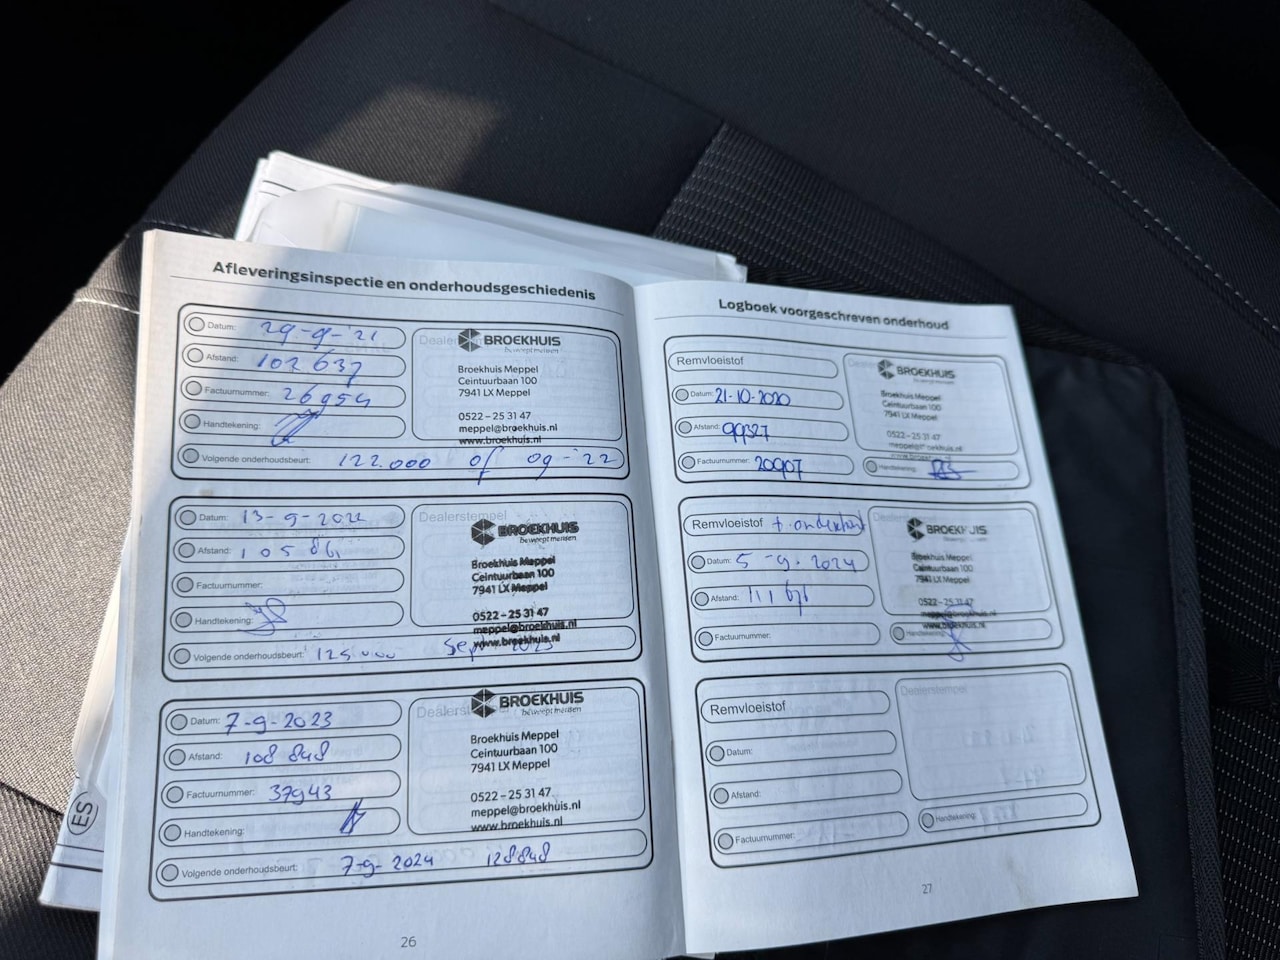 Afleveringsinspectie en onderhoudsgeschiedenis
Datum: 29-9-'21
Afstand: 102637
Factuurnummer: 26954
Handtekening:
Volgende onderhoudsbeurt: 122.000 of 09-'22
Dealerstem
BROEKHUIS
beweegt mensen
Broekhuis Meppel
Ceintuurbaan 100
7941 LX Meppel
0522 – 25 31 47
meppel@broekhuis.nl
www.broekhuis.nl
Datum: 13-9-2022
Afstand: 105
Factuurnummer:
Handtekening:
Volgende onderhoudsbeurt: 125.000 Sep 2023
Dealerstempel
BROEKHUIS
beweegt mensen
Broekhuis Meppel
Ceintuurbaan 100
7941 LX Meppel
0522 – 25 31 47
meppel@broekhuis.nl
www.broekhuis.nl
Datum: 7-9-2023
Afstand: 108 848
Factuurnummer: 37943
Handtekening:
Volgende onderhoudsbeurt: 7-9-2024 128848
Dealerst
BROEKHUIS
beweegt mensen
Broekhuis Meppel
Ceintuurbaan 100
7941 LX Meppel
0522 – 25 31 47
meppel@broekhuis.nl
www.broekhuis.nl
26
ES
Logboek voorgeschreven onderhoud
Remvloeistof
Datum: 21-10-2020
Afstand: 99327
Factuurnummer: 20907
Handtekening:
BROEKHUIS
beweegt mensen
Broekhuis Meppel
Ceintuurbaan 100
7941 LX Meppel
0522 – 25 31 47
Remvloeistof + onderhoud
Datum: 5-9-2024
Afstand: 111 676
Factuurnummer:
Handtekening:
BROEKHUIS
beweegt mensen
Broekhuis Meppel
Ceintuurbaan 100
7941 LX Meppel
0522 – 25 31 47
meppel@broekhuis.nl
www.broekhuis.nl
Remvloeistof
Datum:
Afstand:
Factuurnummer:
Dealerstempel
Handtekening:
27